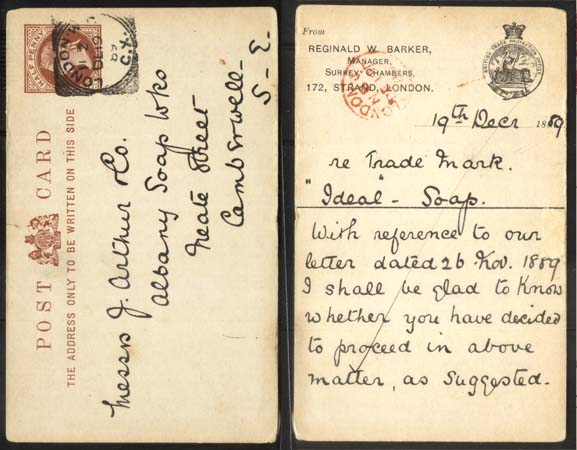 HALF PENNY
LONDON.W
X.C
DE19
89
POST CARD
THE ADDRESS ONLY TO BE WRITTEN ON THIS SIDE
Messrs J. Arthur & Co.
Albany Soap Wks
Neate Street
Camberwell-
S-E.
From
REGINALD W. BARKER,
MANAGER,
SURREY CHAMBERS,
172, STRAND, LONDON.
LONDON
19th Decr 1889
re Trade Mark.
"Ideal" - Soap.
With reference to our
letter dated 26 Nov. 1889
I shall be glad to Know
whether you have decided
to proceed in above
matter, as Suggested.